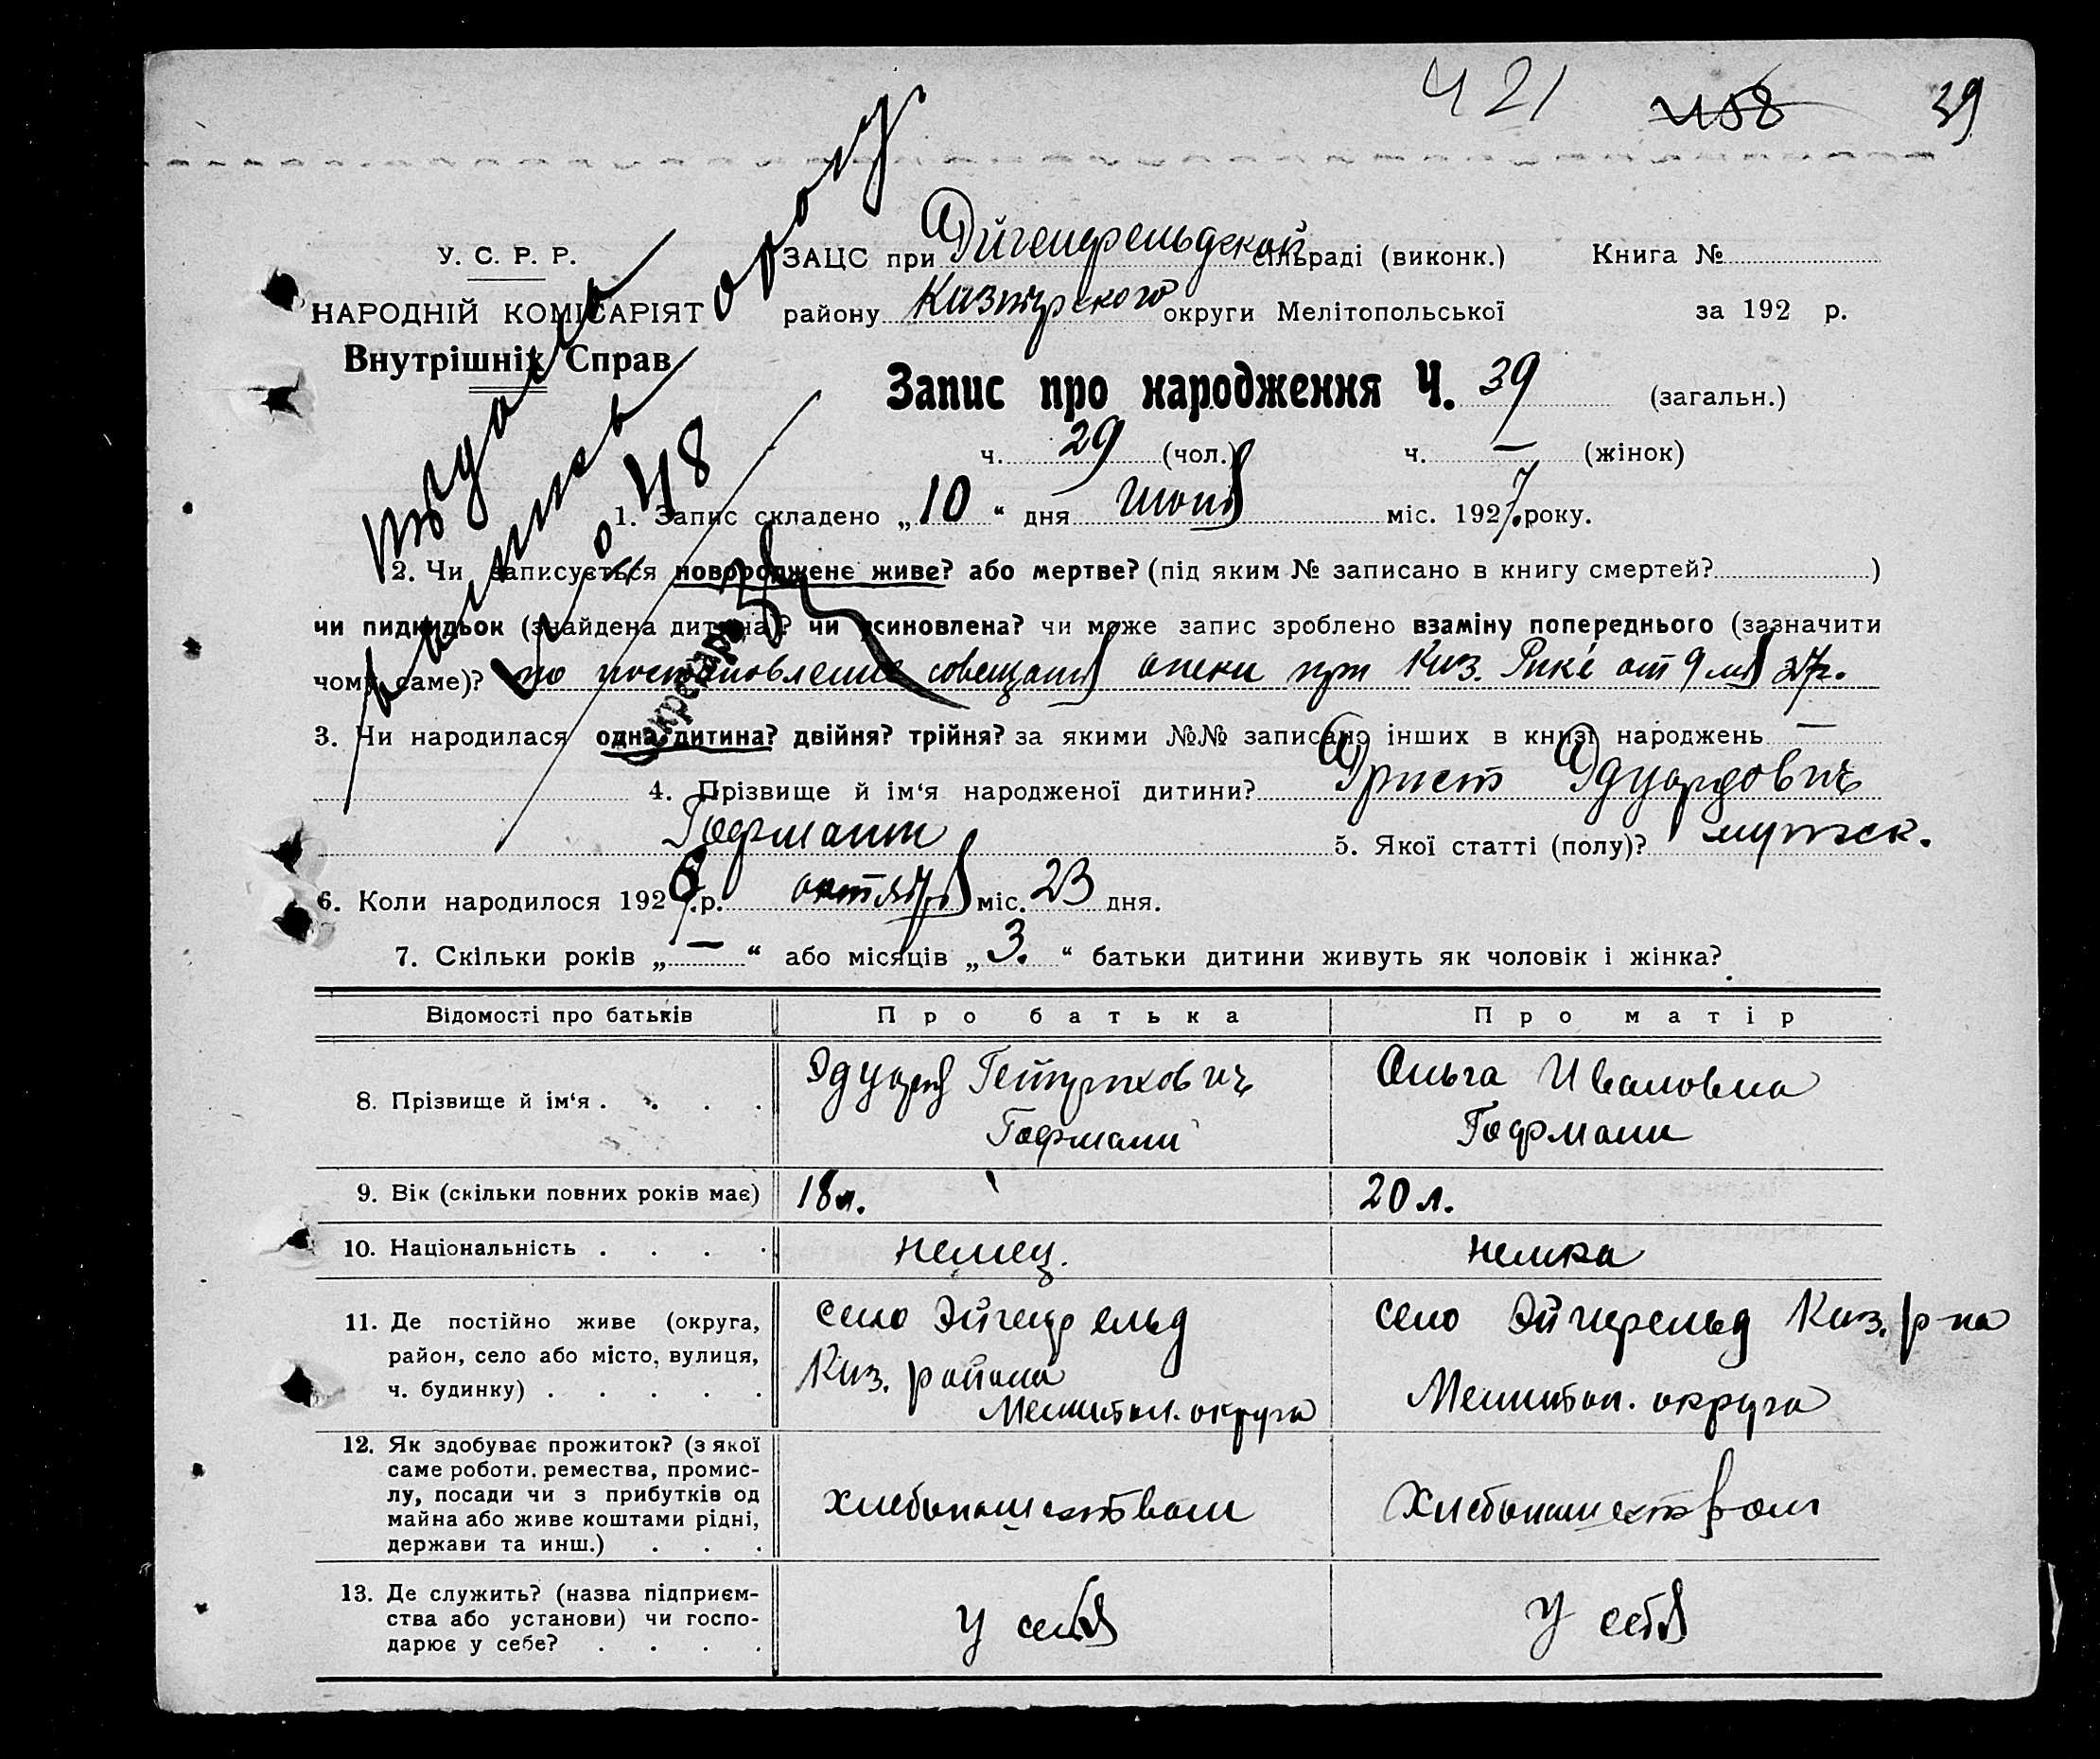 421 458 39
У. С. Р. Р.
НАРОДНІЙ КОМІСАРІЯТ
Внутрішніх Справ
ЗАЦС при Эйгенфельдской сільраді (виконк.) Книга №
району Кизиярского округи Мелітопольської за 192 р.
Запис про народження Ч. 39 (загальн.)
ч. 29 (чол.) ч. — (жінок)
1. Запис складено „10“ дня июня міс. 1927 року.
2. Чи записується новороджене живе? або мертве? (під яким № записано в книгу смертей? )
чи пидкидьок (знайдена дитина)? чи усиновлена? чи може запис зроблено взаміну попереднього (зазначити
чому саме)? по постановление совещания опеки при Киз. Рике от 9 27г.
3. Чи народилася одна дитина? двійня? трійня? за якими №№ записано інших в книзі народжень —
4. Прізвище й ім‘я народженої дитини? Эрнст Эдуардович
Гофманн 5. Якої статті (полу)? мужск.
6. Коли народилося 1926 р. октября міс. 23 дня.
7. Скільки років „—“ або місяців „3.“ батьки дитини живуть як чоловік і жінка?
Відомості про батьків Про батька Про матір
8. Прізвище й ім‘я . . . . Эдуард Гейнрихович Гофманн Ольга Ивановна Гофманн
9. Вік (скільки повних років має) 18л. 20 л.
10. Національність . . . . немец. немка
11. Де постійно живе (округа, район, село або місто, вулиця, ч. будинку) . . . . . село Эйгенфельд Киз. района Мелитоп. округа село Эйгенфельд Киз. р-на Мелитоп. округа
12. Як здобуває прожиток? (з якої саме роботи, ремества, промислу, посади чи з прибутків од майна або живе коштами рідні, держави та инш.) . . . хлебопашеством хлебопашеством
13. Де служить? (назва підприємства або установи) чи господарює у себе? . . . . у себя у себя
Секретарь